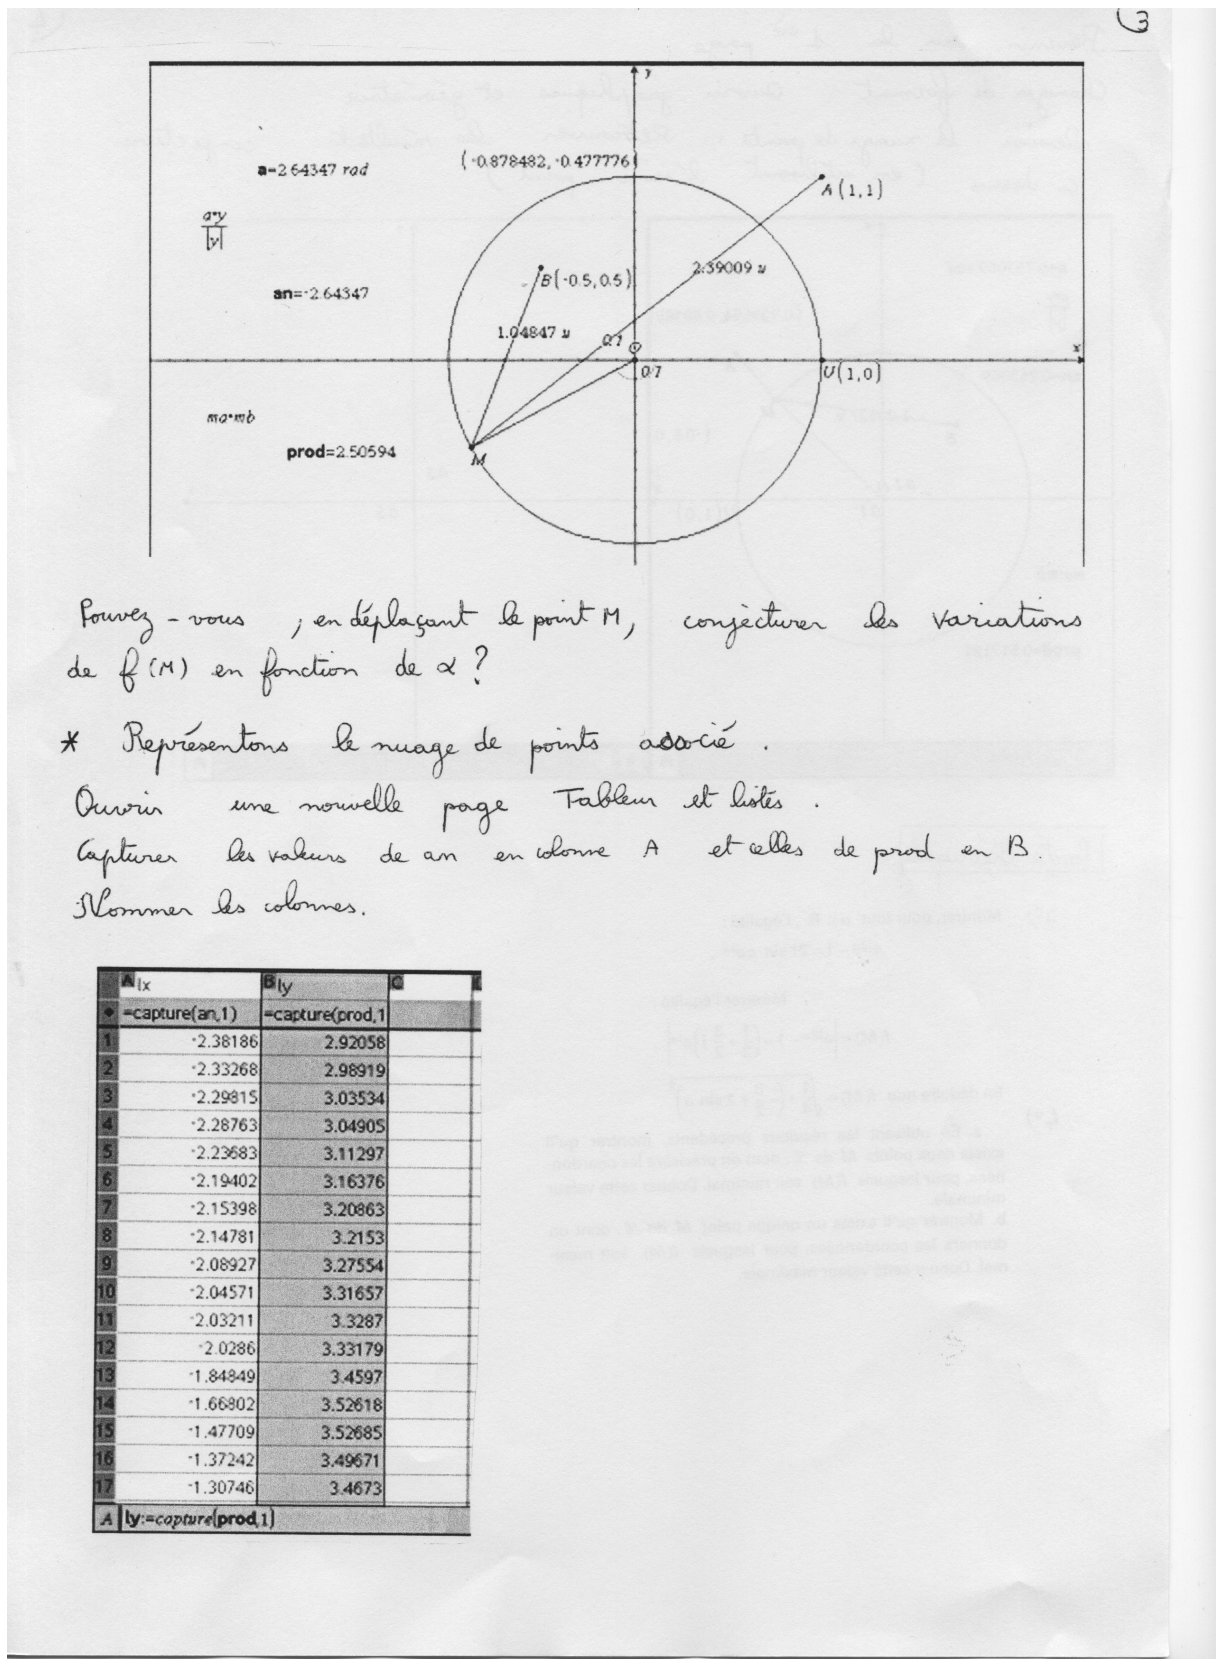 3
y
a=2.64347 rad
(-0.878482, -0.477776)
A(1,1)
a·y
|y|
B(-0.5,0.5)
2.39009 u
an=-2.64347
1.04847 u
0.1
x
0.1
U(1,0)
ma·mb
prod=2.50594
M
Pouvez-vous, en déplaçant le point M, conjecturer les variations
de f(M) en fonction de α ?
* Représentons le nuage de points associé.
Ouvrir une nouvelle page Tableur et listes.
Capturer les valeurs de an en colonne A et celles de prod en B.
Nommer les colonnes.
A lx B ly C
=capture(an,1) =capture(prod,1
1 -2.38186 2.92058
2 -2.33268 2.98919
3 -2.29815 3.03534
4 -2.28763 3.04905
5 -2.23683 3.11297
6 -2.19402 3.16376
7 -2.15398 3.20863
8 -2.14781 3.2153
9 -2.08927 3.27554
10 -2.04571 3.31657
11 -2.03211 3.3287
12 -2.0286 3.33179
13 -1.84849 3.4597
14 -1.66802 3.52618
15 -1.47709 3.52685
16 -1.37242 3.49671
17 -1.30746 3.4673
A ly:=capture(prod,1)